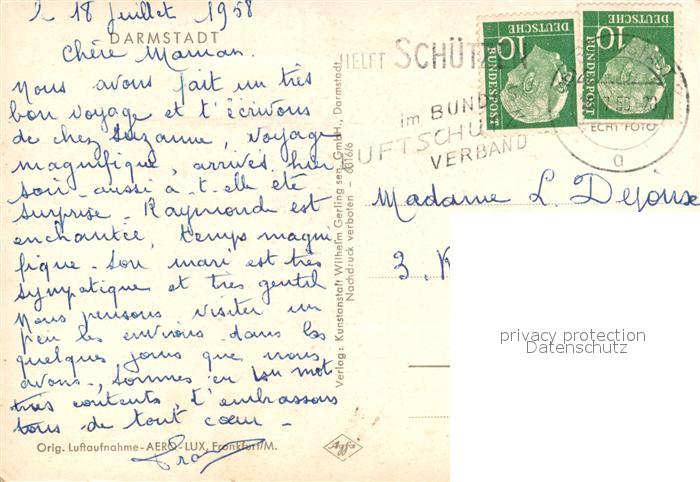 Le 18 juillet 1958
DARMSTADT
Chère Maman.
Nous avons fait un très
bon voyage et t'écrivons
de chez Suzanne, voyage
magnifique, arrivés hier
soir - aussi a-t-elle été
surprise. Raymonde est
enchantée, temps magni
fique. Son mari est très
sympatique et très gentil
Nous pensons visiter un
peu les environs dans les
quelques jours que nous
avons, sommes en un mot
très contents, t'embrassons
tous de tout coeur -
Orig. Luftaufnahme-AERO-LUX, Frankfurt/M.
Verlag: Kunstanstalt Wilhelm Gerling sen. GmbH., Darmstadt
Nachdruck verboten - 6316/6
Agfa
HELFT SCHÜTZEN
im BUNDES
LUFTSCHUTZ
VERBAND
DEUTSCHE
BUNDESPOST
10
DEUTSCHE
BUNDESPOST
10
ECHT FOTO
a
Madame L. Dejoux
3. R
privacy protection
Datenschutz